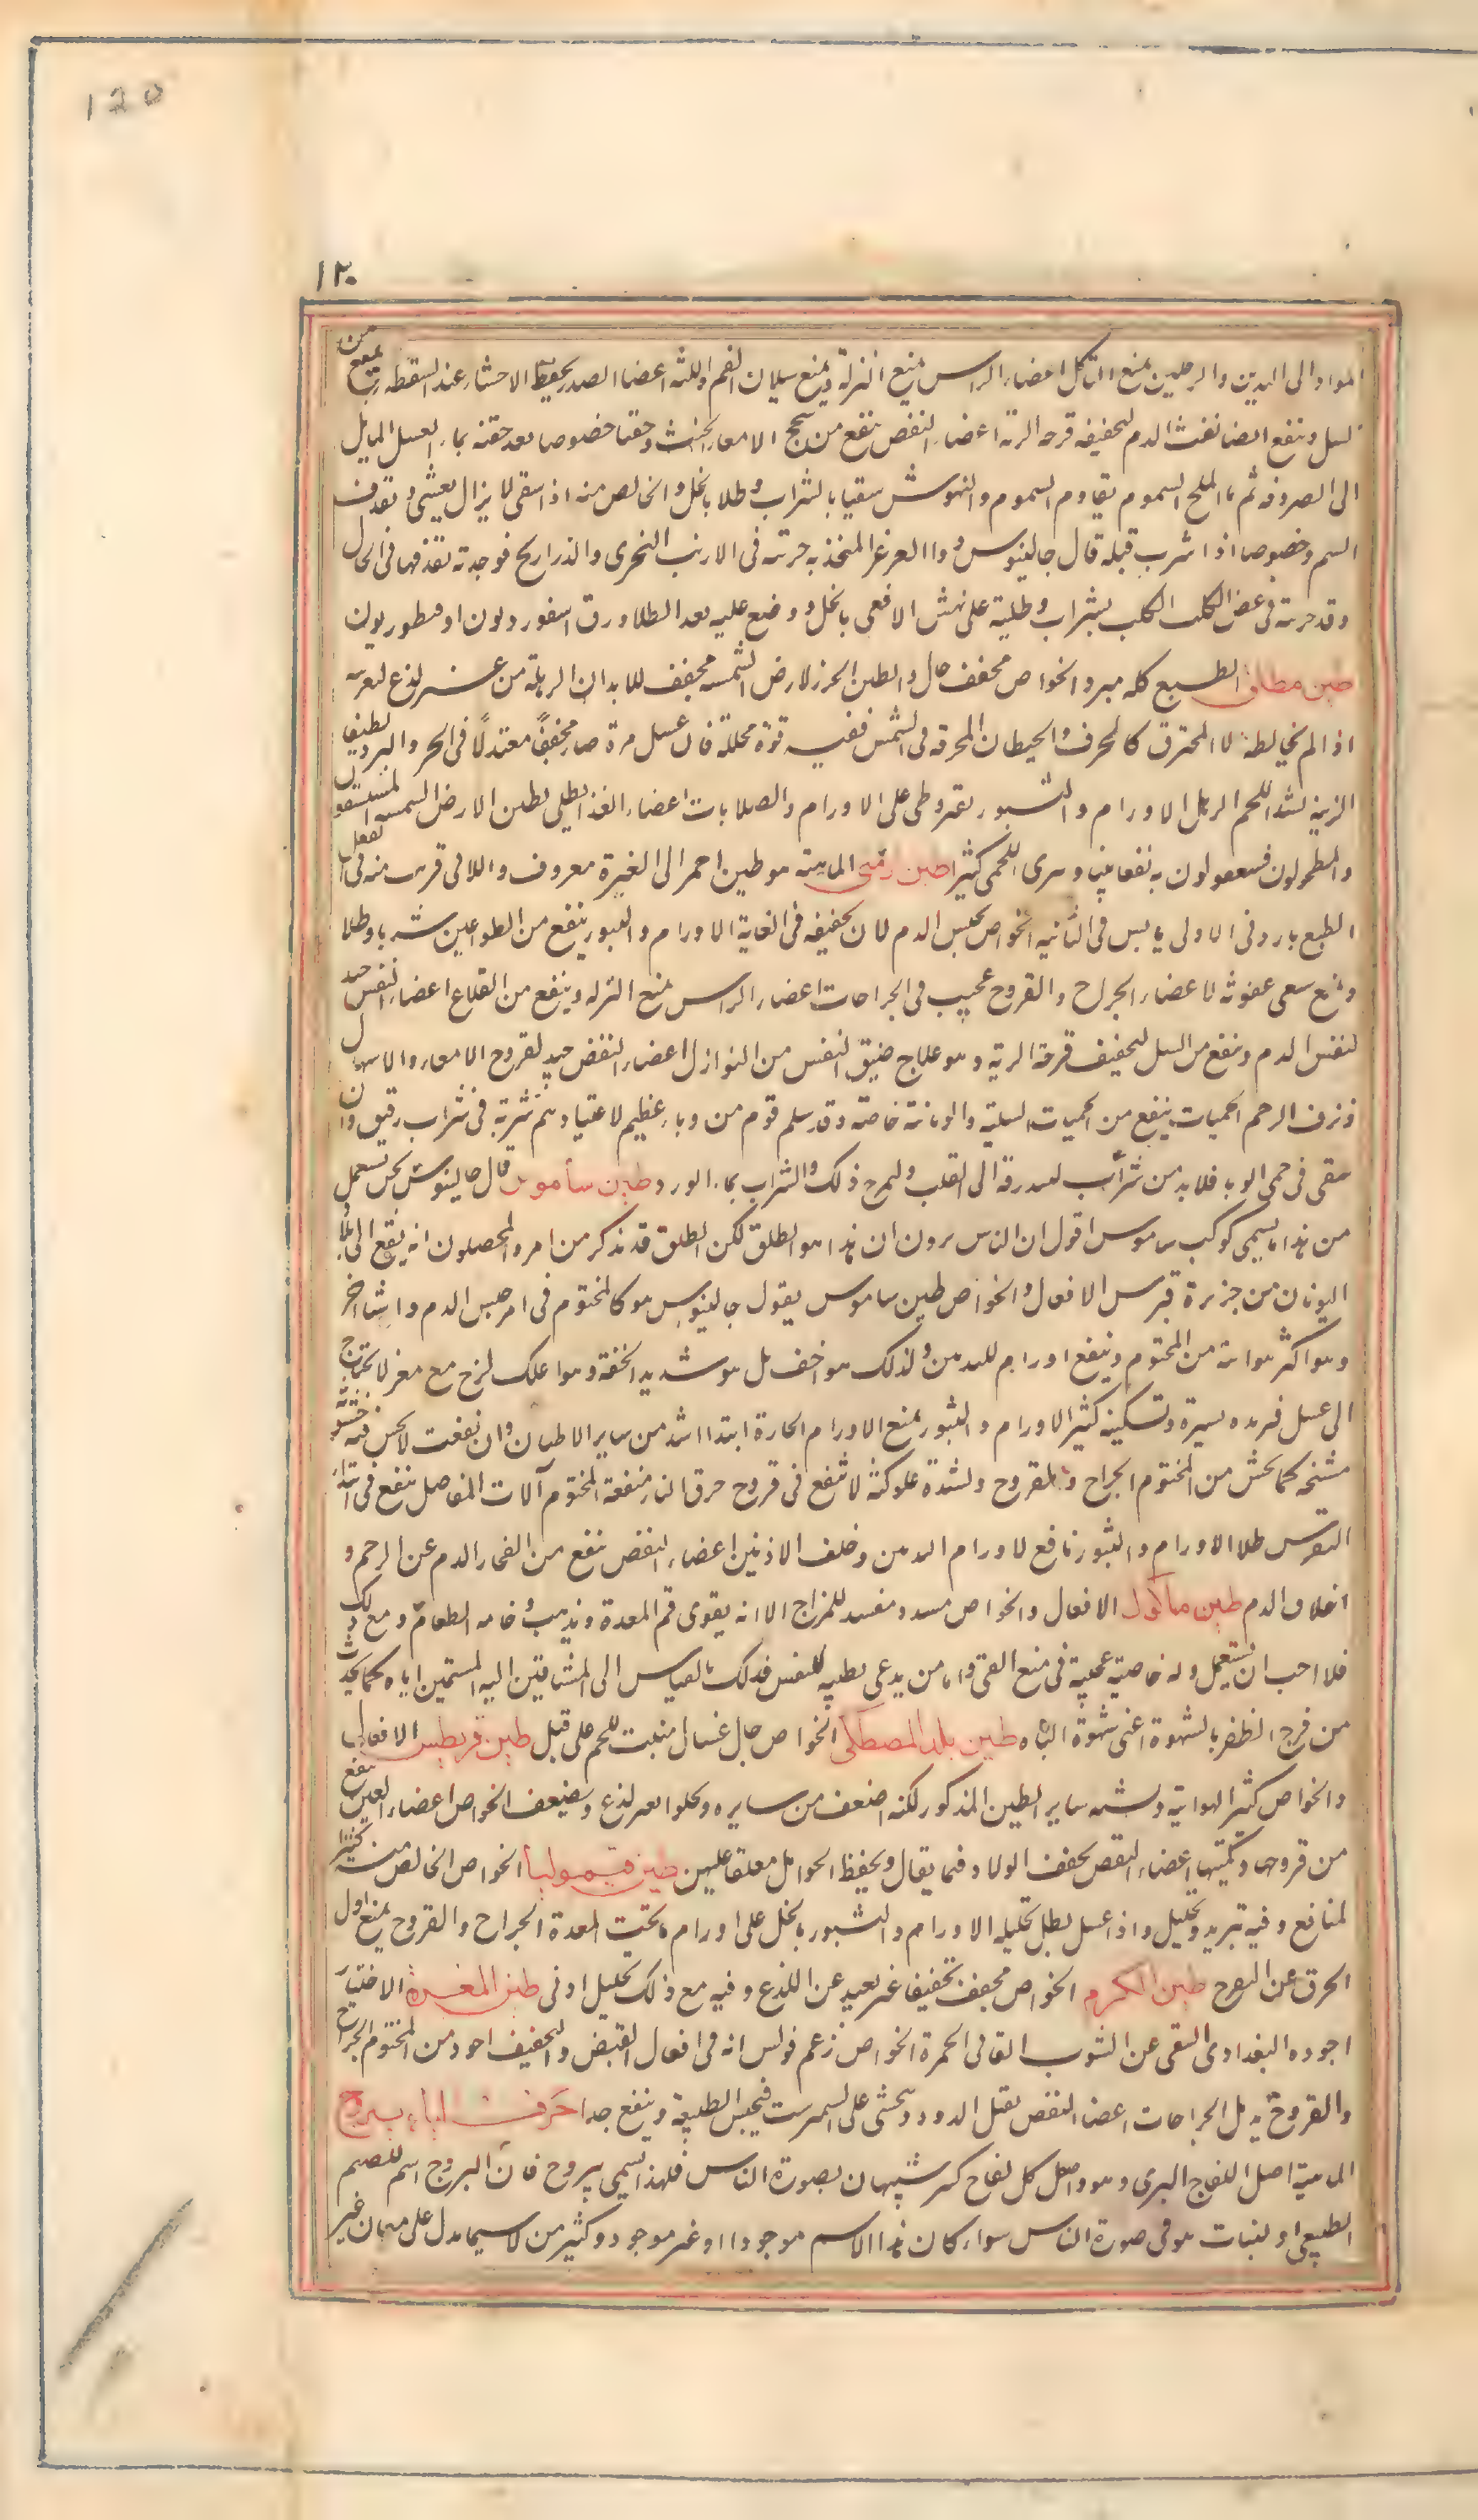 120
١٢٠
المواد الى اليدين والرجلين يمنع التاكل اعضاء الراس يمنع النزلة ويمنع سيلان الفم واللثة اعضا الصدر يحفظ الاحشاء عند السقطة ينفع من
السل وينفع ايضا نفث الدم لتجفيفه قرحة الرية اعضاء النفض ينفع من سحج الامعاء الخبيث وحقنا خصوصا بعد حقنة بماء العسل المايل
الى الصروفة ثم بالملح السموم يقاوم السموم والنهوش سقيا بالشراب وطلا بالخل والخالص منه اذا سقى لا يزال يغثى ويقذف
السم وخصوصا اذا شرب قبله قال جالينوس ودوا العرعر المتخذ به جربته فى الارنب البحرى والذراريح فوجدته يقذفها فى الحال
وقد جربته فى عض الكلب الكلب بشراب وطليته على نهش الافعى بالخل ووضع عليه بعد الطلا ورق اسقورديون او قنطوريون
طين مطلق الطبع كله مبرد الخواص مجفف جال والطين الحرز لارض الشمسه مجفف للابدان الرهلة من غير لذع لغريه
اذا لم يخالطه لا المحترق كالخزف والحيطان المحرقة فى الشمس ففيه قوة محللة فان غسل مرة صار مجففًا معتدلًا فى الحر والبرد لطيفا
الزينة يشد اللحم الرهل الاورام والبثور بقيروطى على الاورام والصلابات اعضاء الغذا يطلى بطين الارض الشمسه المستسقون
والمطحولون فينتفعون به نفعا بينا ويبرى اللحمى كثيرا طين ارمنى الماهية هو طين احمر الى الغبرة معروف واللانى قريب منه فى افعاله
الطبع بارد فى الاولى يابس فى الثانية الخواص يحبس الدم لان تجفيفه فى الغاية الاورام والبثور ينفع من الطواعين شربا وطلا
ويمنع سعى عفونة الاعضاء الجراح والقروح عجيب فى الجراحات اعضاء الراس يمنع النزلة وينفع من القلاع اعضاء النفس جيد
لنفث الدم وينفع من السل لتجفيف قرحة الرية وهو علاج ضيق النفس من النوازل اعضاء النفض جيد لقروح الامعاء والاسهال
ونزف الرحم الحميات ينفع من الحميات السلية والوبائية خاصة وقد سلم قوم من وباء عظيم لاعتيادهم شربة فى شراب رقيق وان
سقى فى حمى الوبا فلا بد من شراب ليبدرقه الى القلب وليمزج ذلك والشراب بماء الورد طين ساموس قال جالينوس نحن نستعمل
من هذا ما يسمى كوكب ساموس اقول ان الناس يرون ان هذا هو الطلق لكن الطلق قد يذكر من امره المحصلون انه يقع الى بلاد
اليونان من جزيرة قبرس الافعال والخواص طين ساموس يقول جالينوس هو كالمختوم فى امر حبس الدم واشيا اخر
وهو اكثر هوائية من المختوم وينفع اورام الثديين ولذلك هو اخف بل هو شديد الخفة وهو اعلك لزج مع مغر لا يحتاج
الى غسل فبرده يسيرة وتسكينه كثير الاورام والبثور يمنع الاورام الحارة ابتدا اشد من ساير الاطيان وان نفعت لا تحس فيه خشونة
مشنجة كما تحس من المختوم الجراح والقروح ولشدة علوكته لا تنفع فى قروح حرق النار منفعة المختوم آلات المفاصل ينفع فى ابتداء
النقرس طلا الاورام والبثور نافع لاورام الثديين وخلف الاذنين اعضاء النفض ينفع من انفجار الدم عن الرحم و
اختلاف الدم طين ماكول الافعال والخواص مسدد مفسد للمزاج الا انه يقوى فم المعدة ويذهب وخامة الطعام ومع ذلك
فلا احب ان يستعمل وله خاصية عجيبة فى منع القى واما من يدعى تطييبه للنفس فذلك بالقياس الى المشتاقين اليه المشتهين اياه كما يحدث
من فرح الظفر بالشهوة اعنى شهوة الباه طين بلد المصطكى الخواص جال غسال منبت للحم على قبل طين قريطس الافعال
والخواص كثير الهوائية ويشبه ساير الطين المذكور لكنه اضعف من سايره ويجلوا بغير لذع ويضعف الخواص اعضاء العين ينفع
من قروحها وكميتها اعضاء النفض يخفف الولاد فيما يقال ويحفظ الحوامل معلقا عليهن طين قيموليا الخواص الخالص منه كثير
المنافع وفيه تبريد وتحليل واذا غسل بطل تحليله الاورام والبثور بالخل على اورام ما تحت المعدة الجراح والقروح يمنع اول
الحرق عن التقرح طين الكرم الخواص مجفف تجفيفا غير بعيد عن اللذع وفيه مع ذلك تحليل ادنى طين المغرة الاختيار
اجوده البغدادى النقى عن الشوب القانى الحمرة الخواص زعم فولس انه فى افعال القبض والتجفيف اجود من المختوم الجراح
والقروح يدمل الجراحات اعضا النفض يقتل الدود ويتحسى على النيمرشت فيحبس الطبيعة وينفع جدا حرف الياء يبروح
الماهية اصل اللفاح البرى وهو اصل كل لفاح كبير شبيهان بصورة الناس فلهذا يسمى يبروح فان اليبروح اسم للصنم
الطبيعى او لنبات هو فى صورة الناس سواء كان هذا الاسم موجودا او غير موجود وكثير من الاسما يدل على معان غير